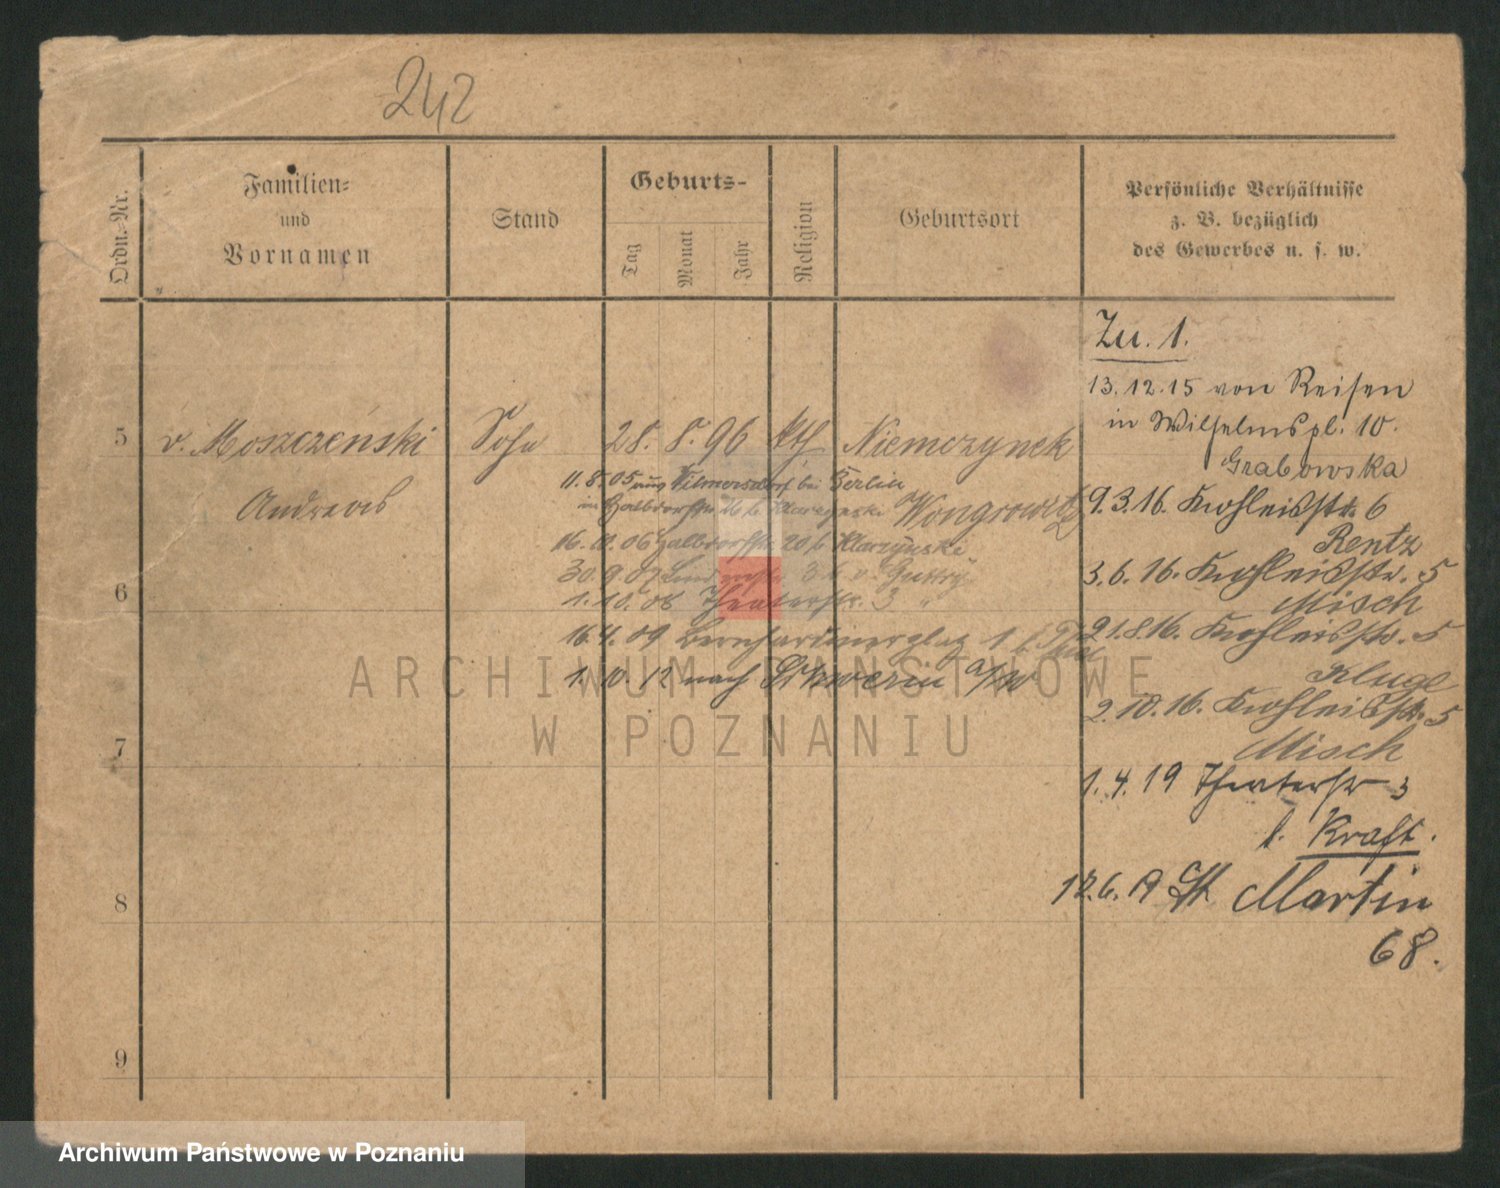 242
Ordn.-Nr.
Familien-
und
Vornamen
Stand
Geburts-
Tag
Monat
Jahr
Religion
Geburtsort
Persönliche Verhältnisse
z. B. bezüglich
des Gewerbes u. s. w.
5
v. Moszczeński
Sohn
28. 8. 96
kth
Niemczynek
Andreas
Wongrowitz
11.8.05 aus Wilmersdorf bei Berlin
in Halbdorfstr.
16.10.06 Halbdorfstr. 20
30.9.07
1.10.08 Theaterstr. 3 "
16.4.09 Bernhardinerplatz 1
1.10.12 nach Schwerin a/W
6
7
8
9
Zu. 1.
13.12.15 von Reisen
in Wilhelmspl. 10.
Grabowska
9.3.16. Kohleisstr. 6
Rentz
3.6.16. Kohleisstr. 5
Misch
21.8.16. Kohleisstr. 5
Kluge
2.10.16. Kohleisstr. 5
Misch
1.4.19 Theaterstr 3
b. Kraft.
12.6.19 St. Martin
68.
ARCHIWUM PAŃSTWOWE
W POZNANIU
Archiwum Państwowe w Poznaniu